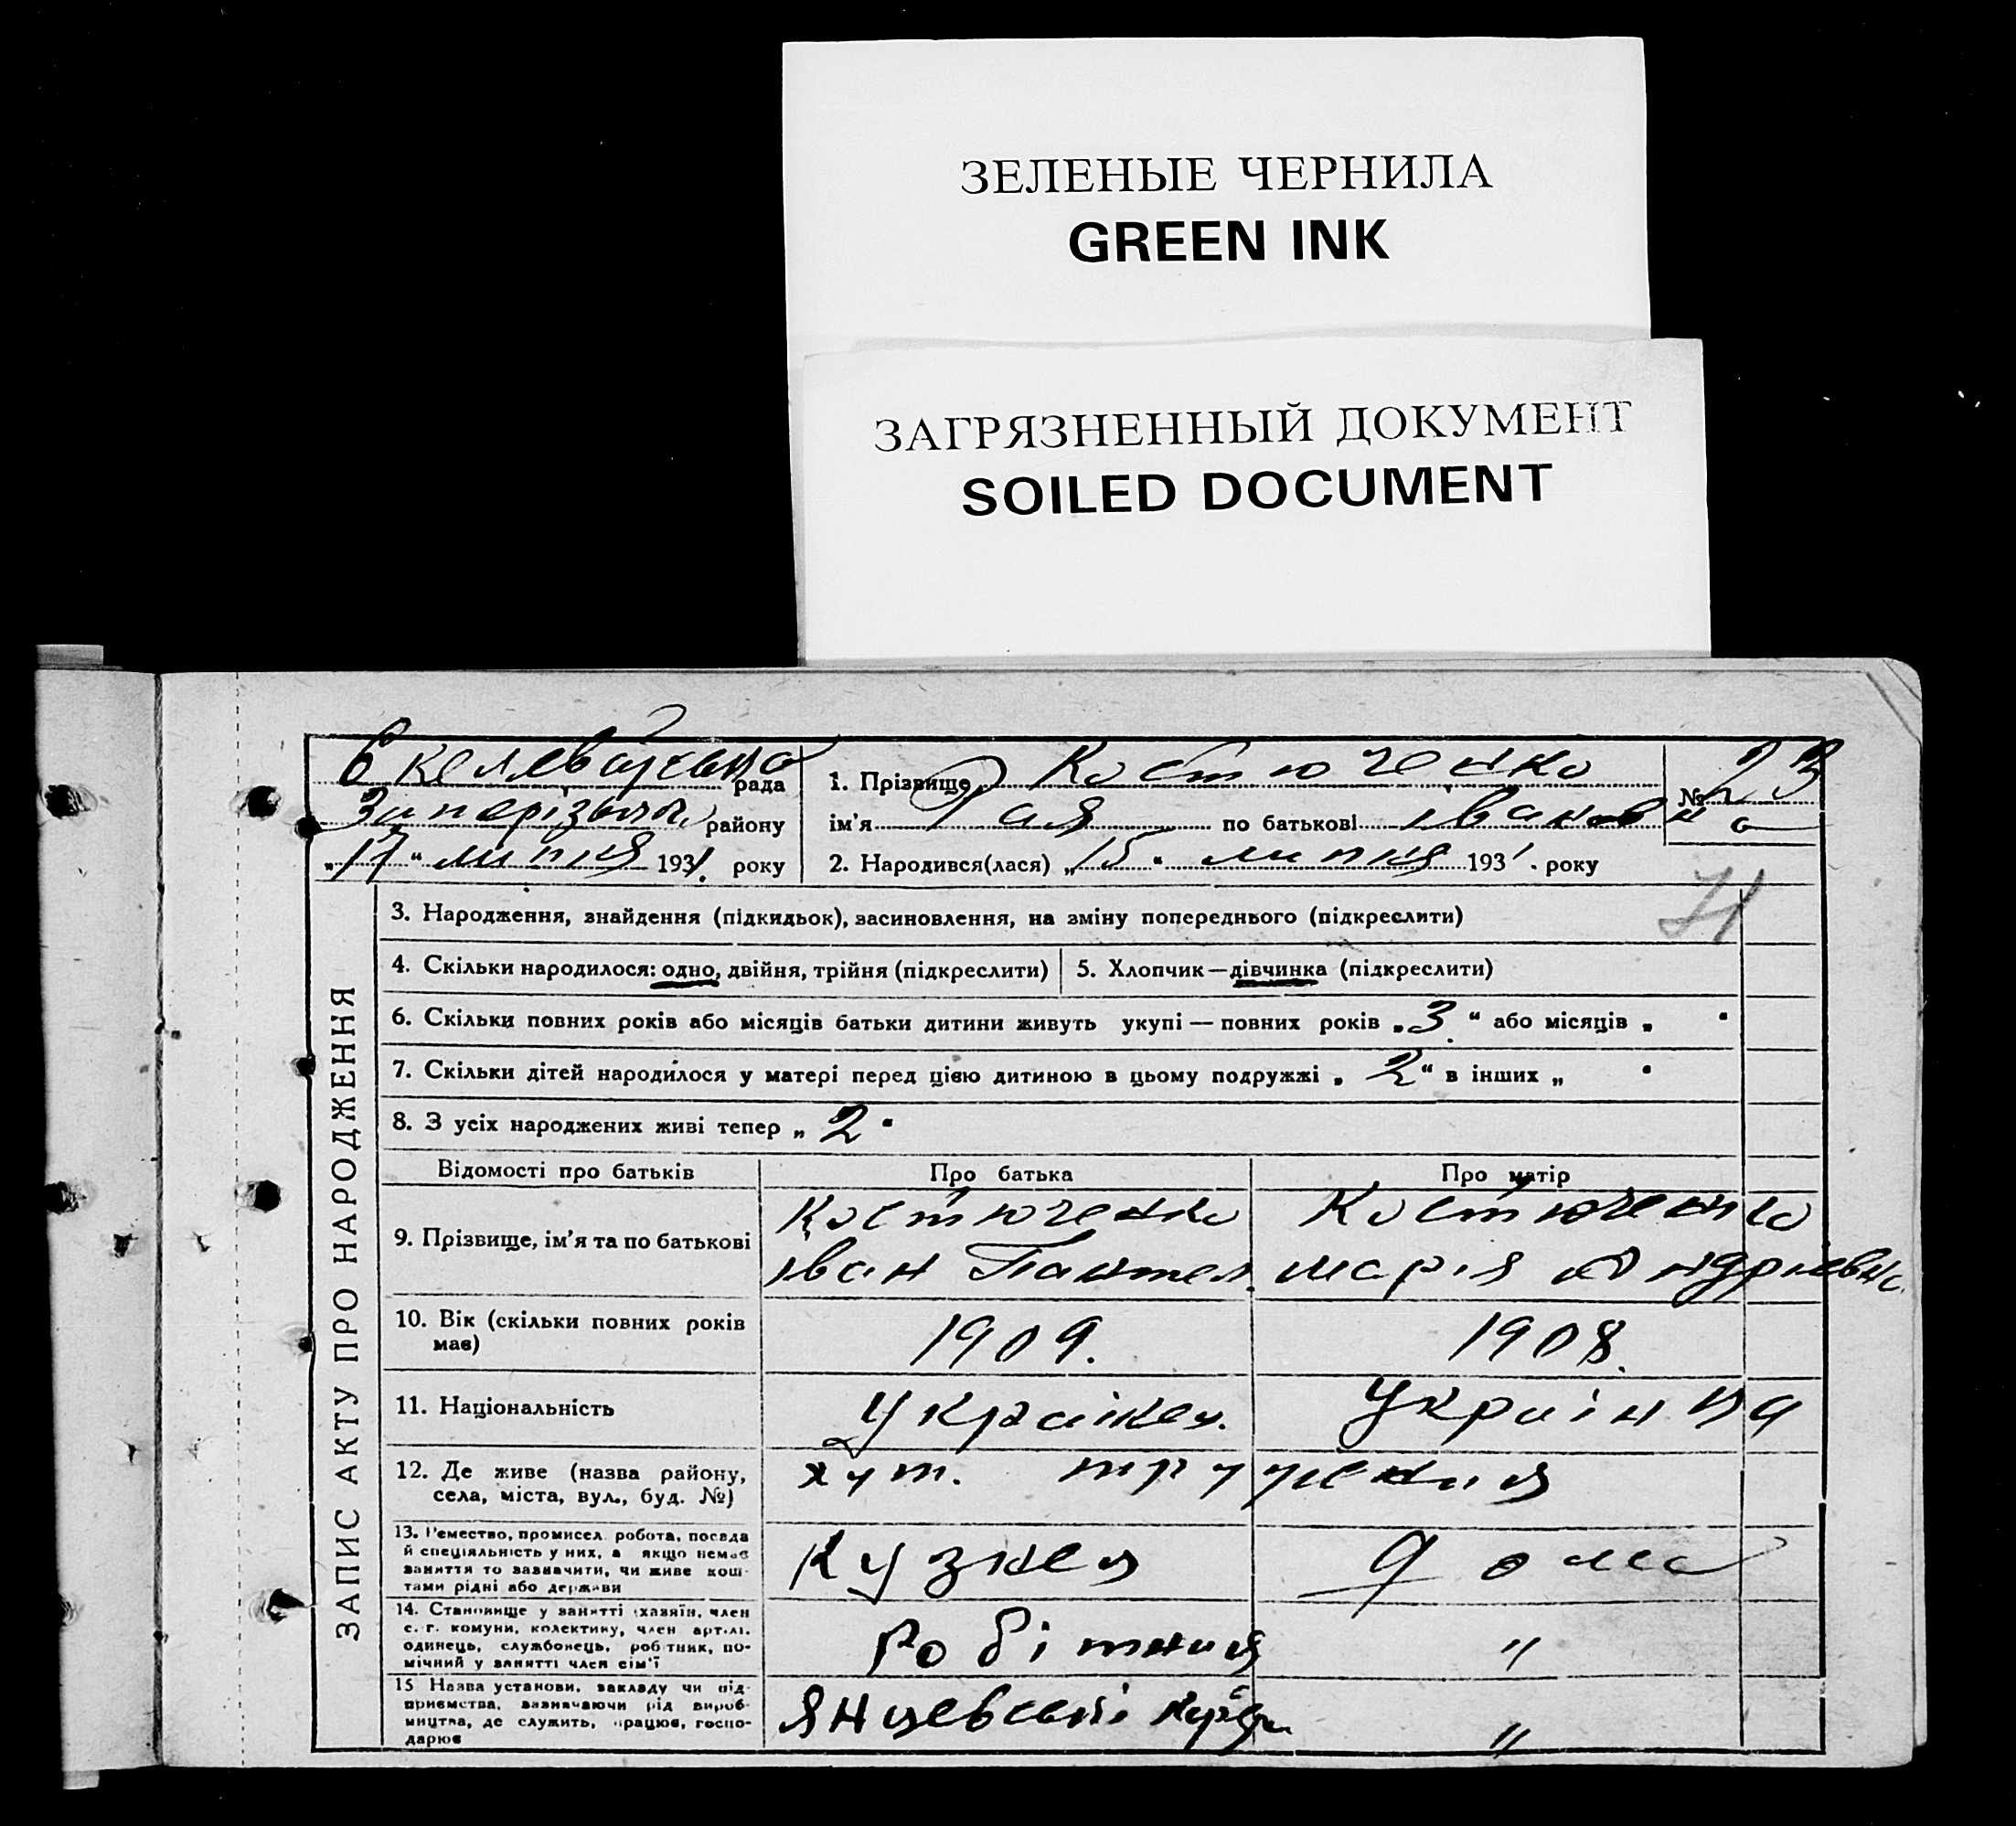 ЗЕЛЕНЫЕ ЧЕРНИЛА
GREEN INK
ЗАГРЯЗНЕННЫЙ ДОКУМЕНТ
SOILED DOCUMENT
ЗАПИС АКТУ ПРО НАРОДЖЕННЯ
рада
району
„17“ липня 1931. року
1. Прізвище Костюченко
№ 23
ім'я Рая по батькові івановна
2. Народився(лася) „15“ липня 1931. року
3. Народження, знайдення (підкидьок), засиновлення, на зміну попереднього (підкреслити)
4. Скільки народилося: одно, двійня, трійня (підкреслити)
5. Хлопчик — дівчинка (підкреслити)
6. Скільки повних років або місяців батьки дитини живуть укупі — повних років „3“ або місяців „ “
7. Скільки дітей народилося у матері перед цією дитиною в цьому подружжі „2“ в інших „ “
8. З усіх народжених живі тепер „2“
Відомості про батьків Про батька Про матір
9. Прізвище, ім'я та по батькові
Костюченко
іван Пантел.
Костюченко
марія Андріевна
10. Вік (скільки повних років має)
1909. 1908.
11. Національність
Українец. Українка
12. Де живе (назва району,
села, міста, вул., буд. №)
хут.
13. Ремество, промисел робота, посада
й спеціяльність у них, а якщо немає
заняття то зазначити, чи живе кош-
тами рідні або держави
Кузнец дома
14. Становище у занятті (хазяїн, член
с.-г. комуни, колективу, член артілі,
одинець, службовець, робітник, по-
мічний у занятті член сім'ї
Робітник "
15 Назва установи, закладу чи під-
приємства, зазначаючи рід вироб-
ництва, де служить, працює, госпо-
дарює
Янцевський кар'єр "